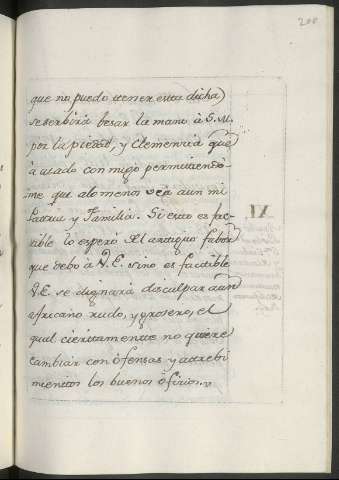 200
que no puedo ttener estta dicha
se serbirá besar la mano à S.M.
por la piedad, y Clemencia que
à usado con migo permittiendo-
me que alo menos vea aun mi
Pattria y Familia. Si estto es fac-
tible lo esperó del anttiguo fabor
que debo à V.E. sino es facttible
V.E. se dignará disculpar aun
africano rudo, y grosero, el
qual cierttamentte no quiere
cambiar con ófensas y attrebi
mienttos los buenos ófizios.
XI.